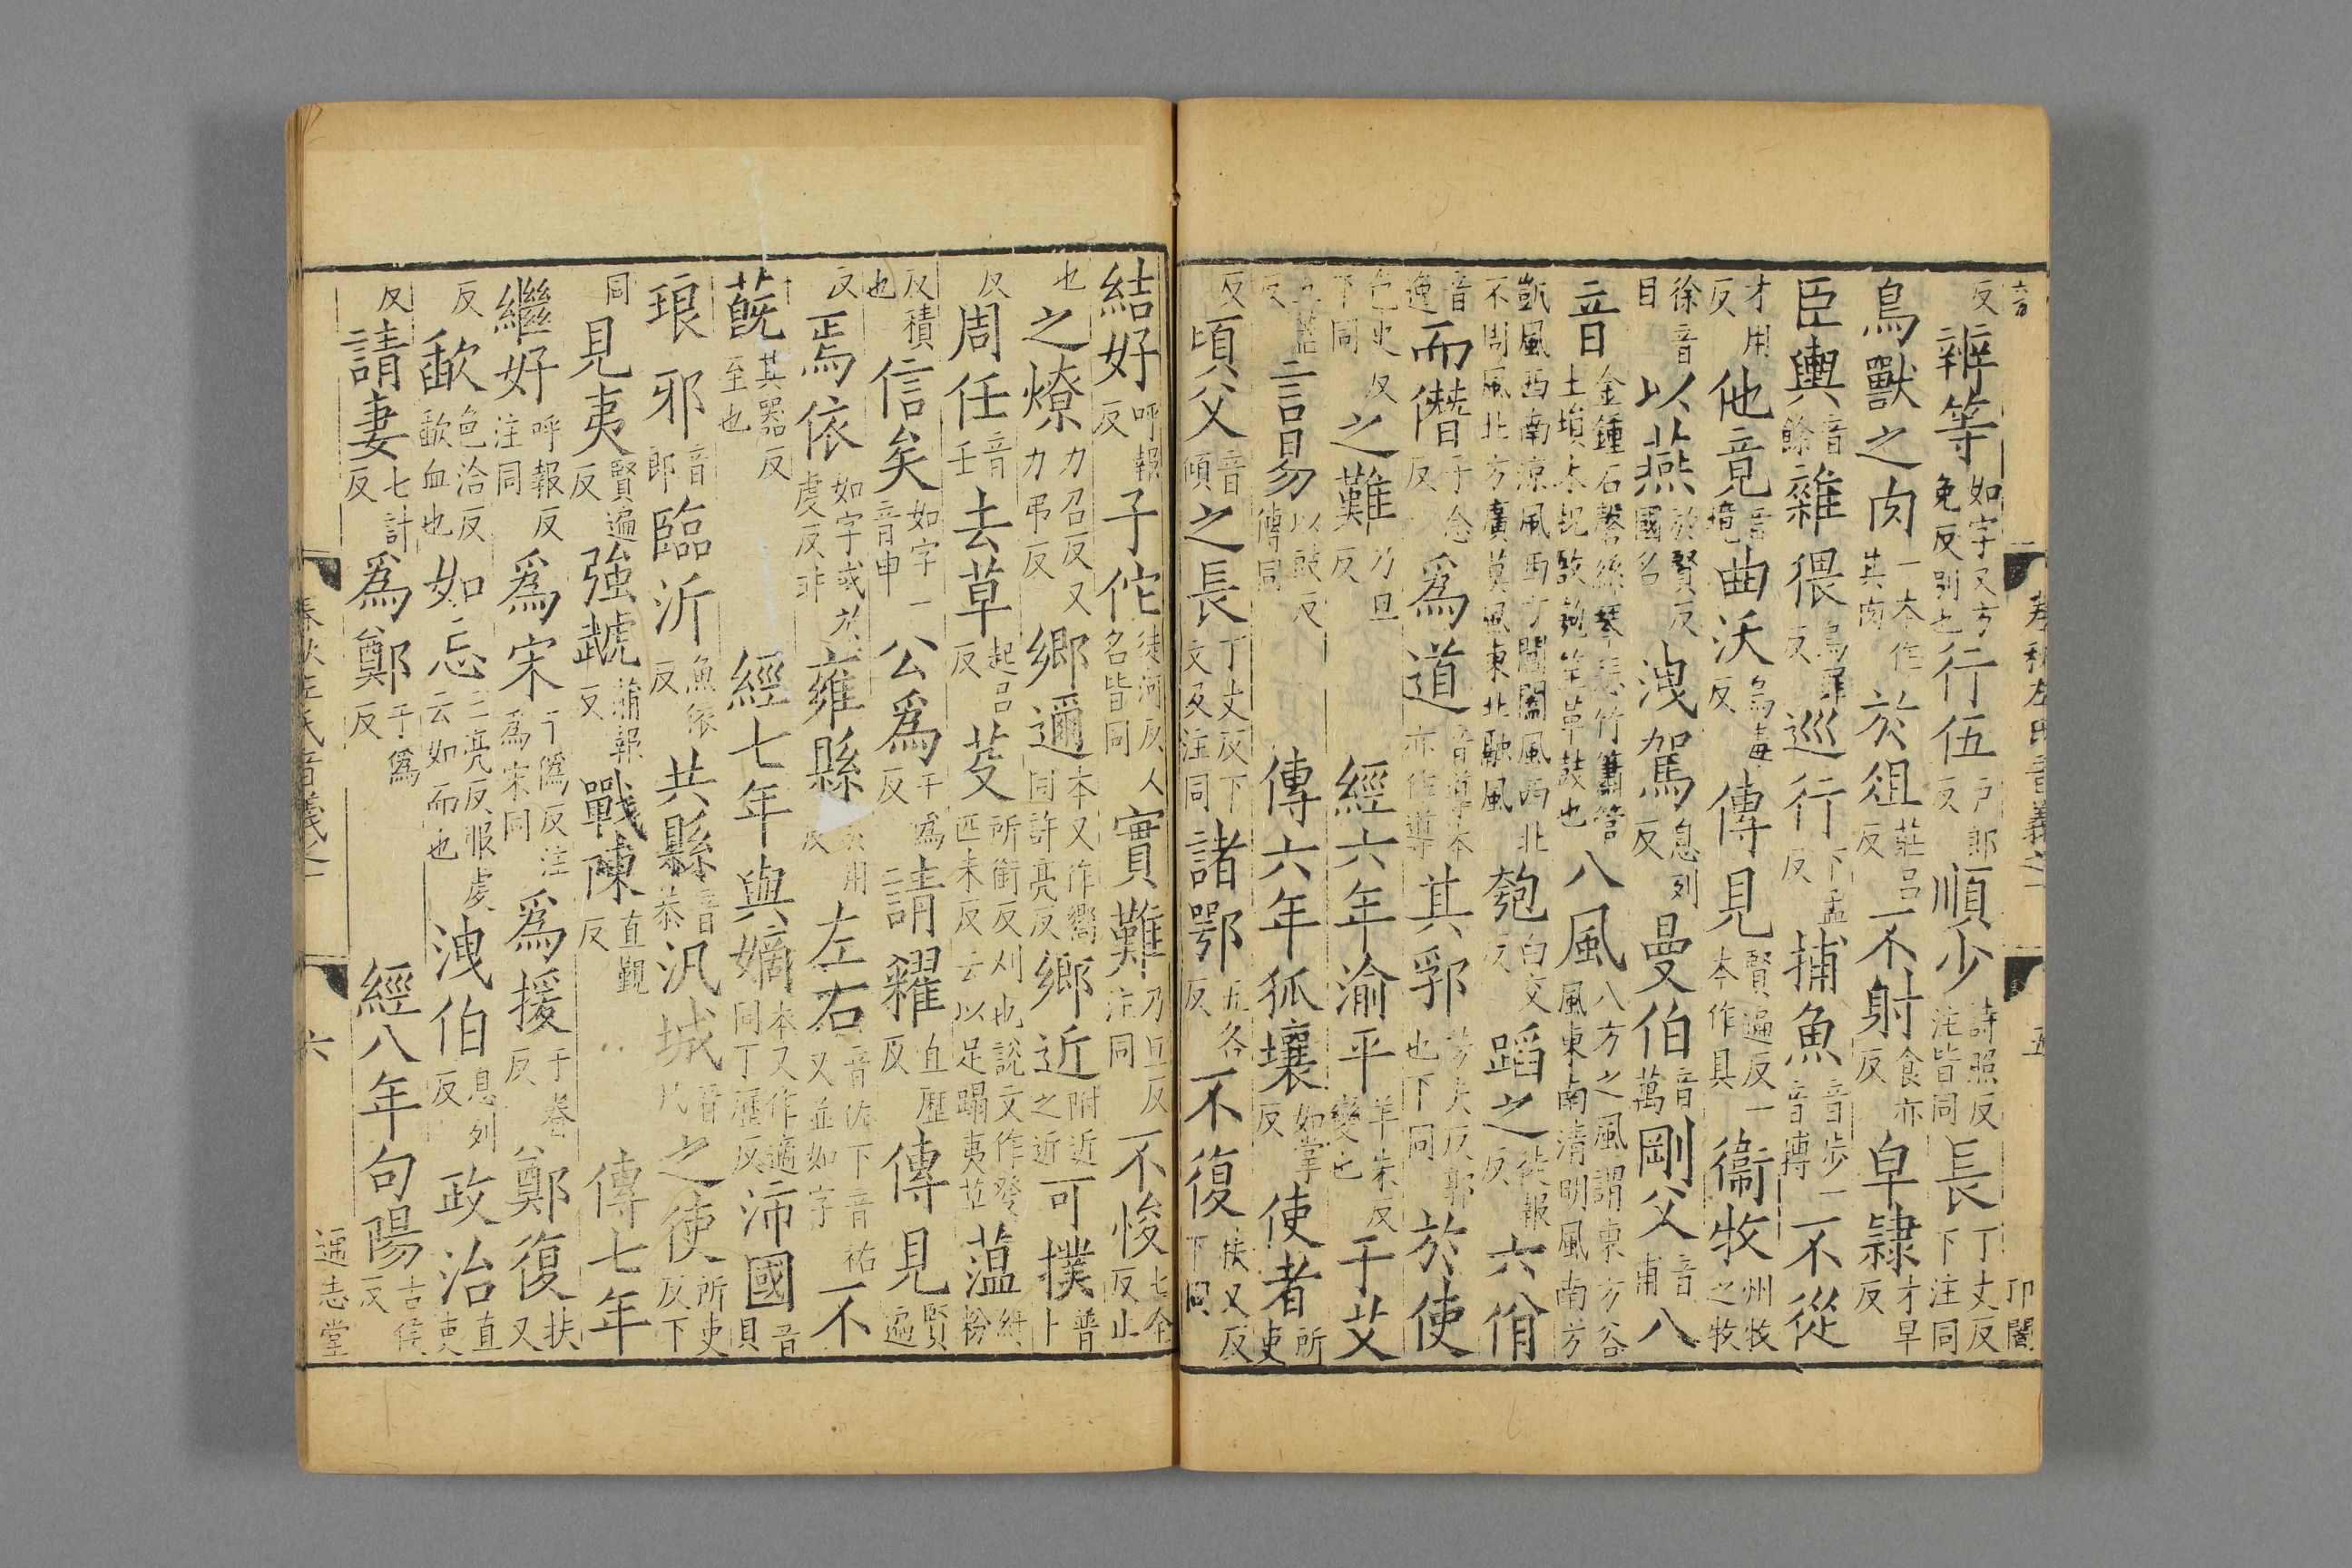 反辨等如字又方免反別也行伍戶郎反順少詩照反注皆同長丁丈反下注同
鳥獸之肉一本作其肉於俎莊呂反不射食亦反皁隸才早反
臣輿音餘雜猥烏罪反巡行下孟反捕魚音步一音搏不從
才用反他竟音境曲沃烏毒反傳見賢遍反一本作具衞牧州牧之牧
徐音目以燕於賢反國名洩駕息列反曼伯音萬剛父音甫八
音金鍾石磬絲琴瑟竹簫管土塤木柷敔匏笙革鼓也八風八方之風謂東方谷風東南清明風南方
凱風西南涼風西方閶闔風西北不周風北方廣莫風東北融風匏白交反蹈之徒報反六佾
音逸而僭子念反爲道音導本亦作導其郛芳夫反郭也下同於使
色吏反下同之難乃旦反經六年渝平羊朱反變也于艾
五蓋反言易以豉反傳同傳六年狐壤如掌反使者所吏
反頃父音傾之長丁丈反下文及注同諸鄂五各反不復扶又反下同
結好呼報反子佗徒河反人名皆同實難乃旦反注同不悛七全反止
也之燎力召反又力弔反鄉邇本又作嚮同許亮反鄉近附近之近可撲普卜
反周任音壬去草起呂反芟所銜反刈也說文作癹匹末反云以足蹋夷草蘊紆粉
反積也信矣如字一音申公爲于爲反請糴直歷反傳見賢遍
反焉依如字或於虔反非雍縣於用反左右音佐下音祐又並如字不
蔇其器反至也經七年與嫡本又作適同丁歷反沛國音貝
琅邪音郎臨沂魚依反共縣音恭汎城音凡之使所吏反下
同見夷賢遍反強虣蒲報反戰陳直覲反傳七年
繼好呼報反注同爲宋于僞反注爲宋同爲援于眷反鄭復扶又
反歃色洽反歃血也如忘亡亮反服虔云如而也洩伯息列反政治直吏
反請妻七計反爲鄭于僞反經八年句陽古侯反
春秋左氏音義之一
六
通志堂